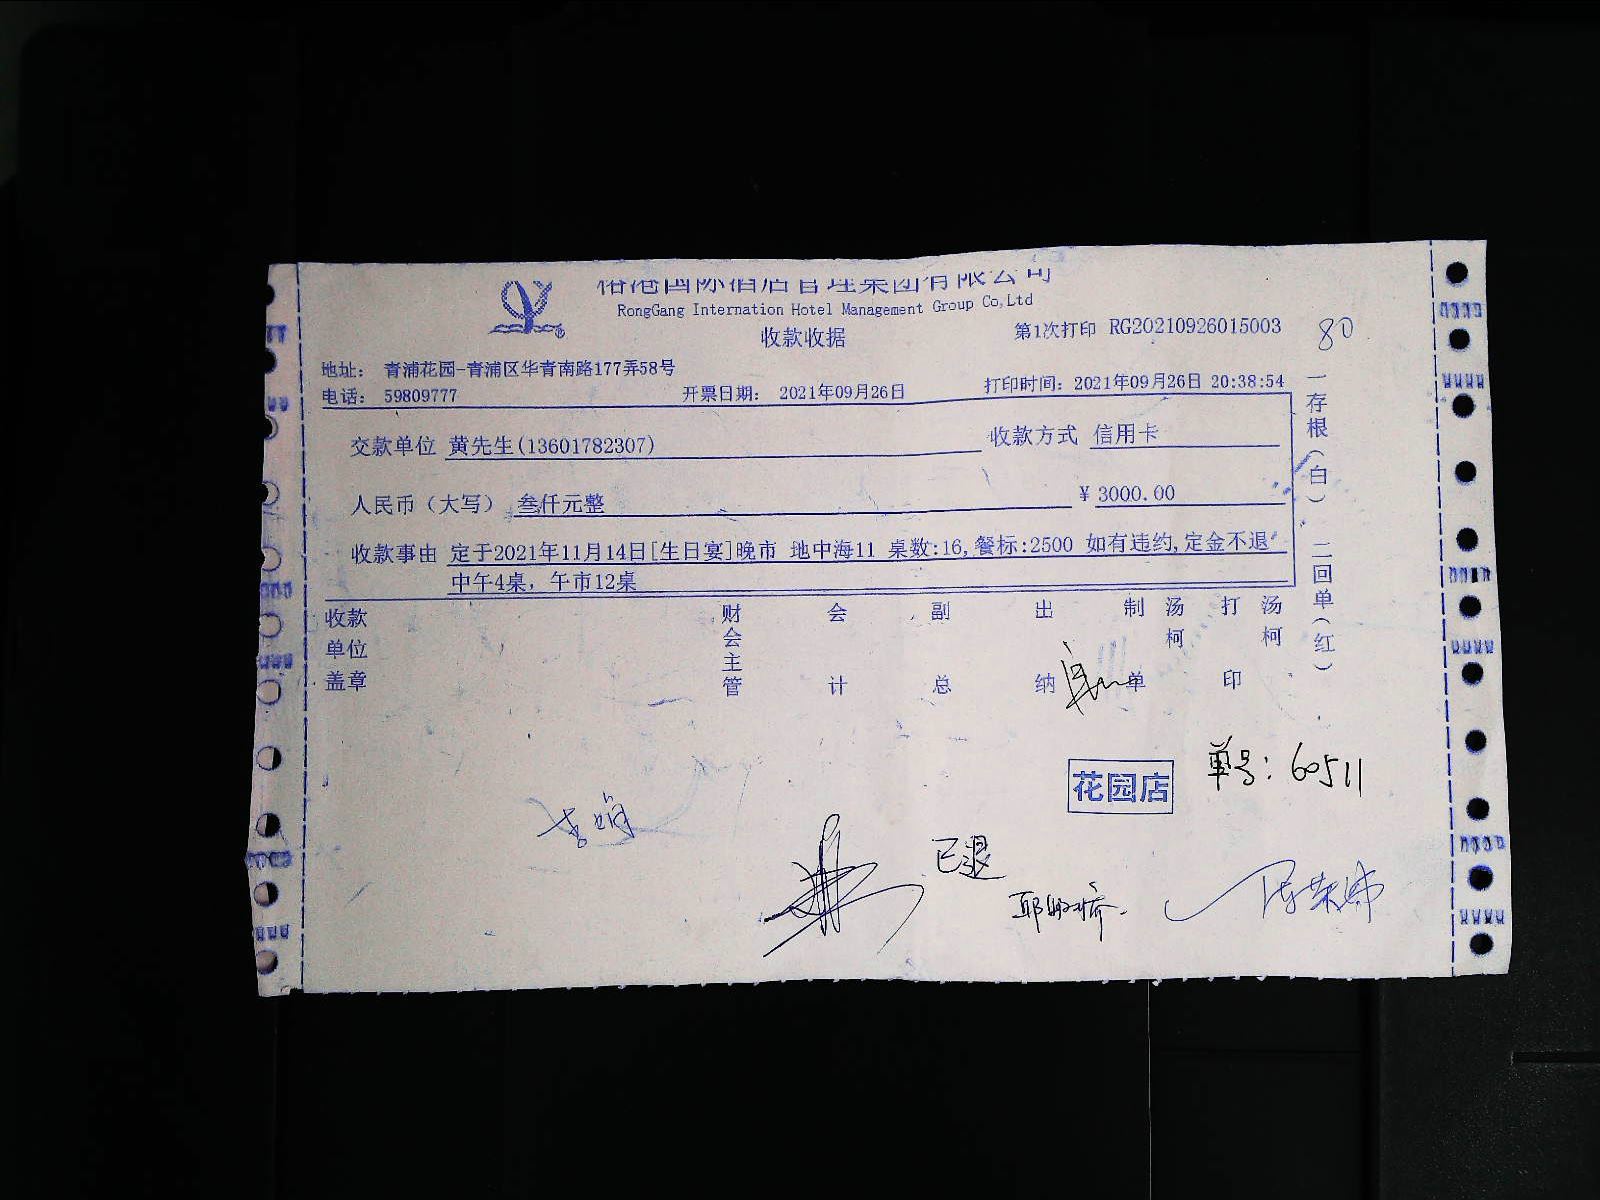 国际酒店管理集团有限公司
RongGang Internation Hotel Management Group Co,Ltd
收款收据
第1次打印 RG20210926015003
80
地址： 青浦花园-青浦区华青南路177弄58号
电话： 59809777 开票日期： 2021年09月26日 打印时间：2021年09月26日 20:38:54
交款单位 黄先生(13601782307) 收款方式 信用卡
人民币（大写） 叁仟元整 ¥ 3000.00
收款事由 定于2021年11月14日[生日宴]晚市 地中海11 桌数:16,餐标:2500 如有违约,定金不退
中午4桌，午市12桌
一存根（白） 二回单（红）
收款单位盖章 财会主管 会计 副总 出纳 制单 汤柯 打印 汤柯
花园店
单号：60511
已退